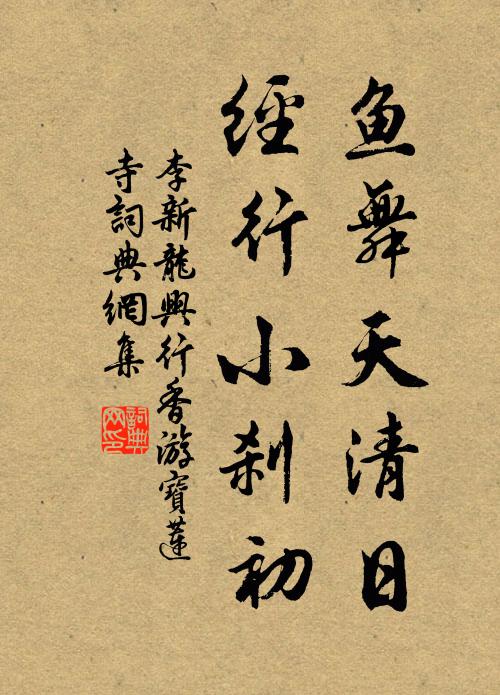 鱼舞天清日
經行小刹初
李新龍興行香游寶蓮
寺詞典網集
詞典
网印